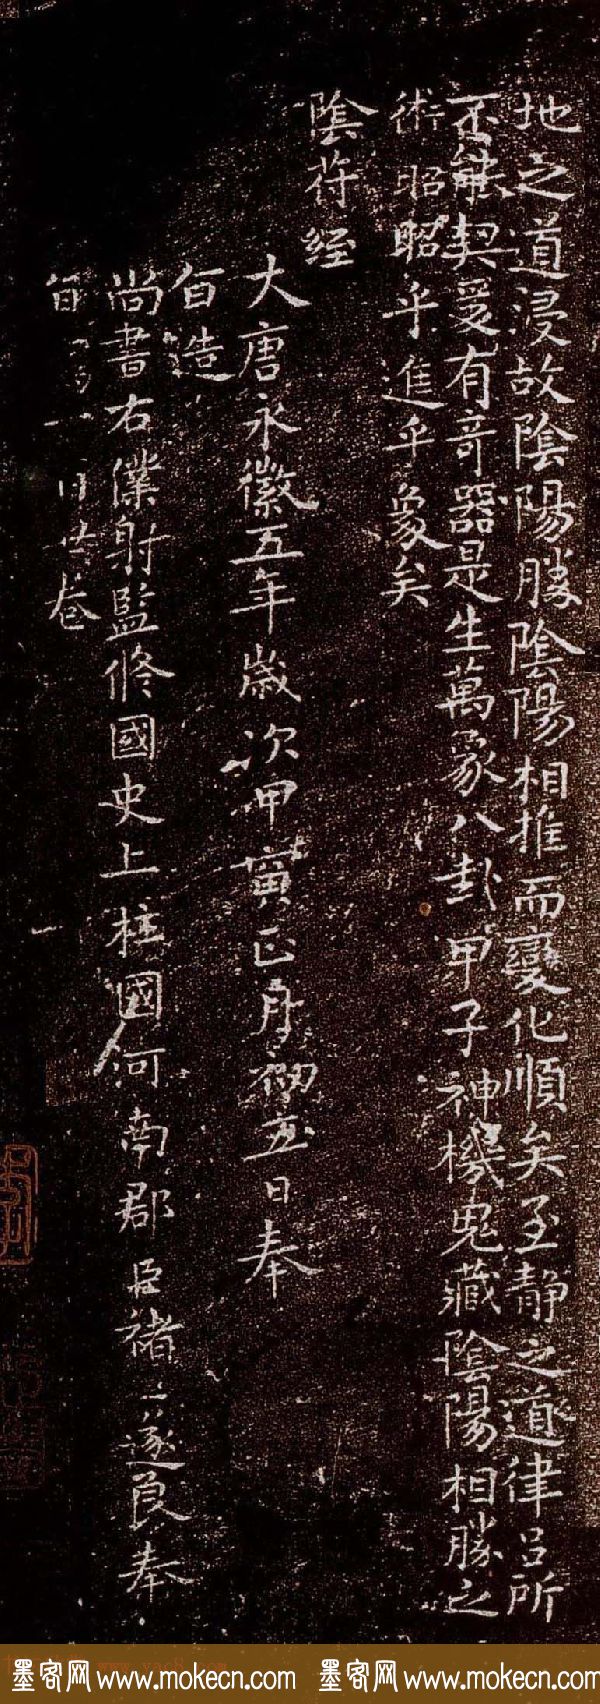 地之道浸故陰陽勝陰陽相推而變化順矣至静之道律呂所
不能契爰有奇器是生萬象八卦甲子神機鬼藏陰陽相勝之
術昭昭乎進乎象矣
陰符經
大唐永徽五年歲次甲寅正月初五日奉
旨造
尚書右僕射監修國史上柱國河南郡臣褚遂良奉
旨
一百廿卷
墨客网 www.mokecn.com 墨客网 www.mokecn.com